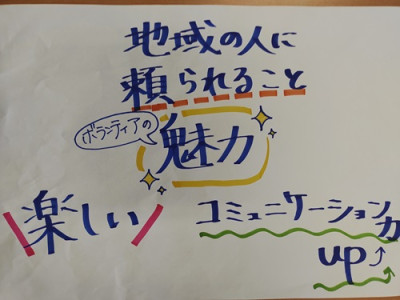 地域の人に
頼られること
ボランティアの
魅力
楽しい
コミュニケーション力
up